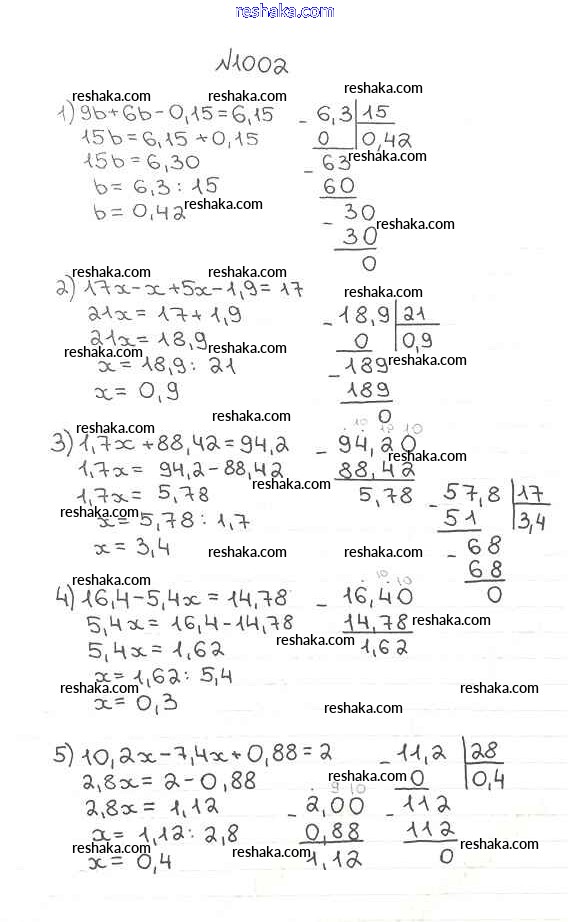 reshaka.com
№1002
reshaka.com reshaka.com reshaka.com
1) 9b+6b-0,15=6,15
15b=6,15+0,15
15b=6,30
b=6,3:15
b=0,42 reshaka.com
- 6,3 | 15
0 | 0,42
reshaka.com
- 63
60
reshaka.com
- 30
30
0
reshaka.com reshaka.com reshaka.com
2) 17x-x+5x-1,9=17
21x=17+1,9
21x=18,9
reshaka.com reshaka.com
x=18,9:21
x=0,9
- 18,9 | 21
0 | 0,9
reshaka.com
- 189
189
0
reshaka.com reshaka.com
3) 1,7x+88,42=94,2
1,7x=94,2-88,42
1,7x=5,78 reshaka.com
reshaka.com
x=5,78:1,7
x=3,4
10 10 10
- 94,20
reshaka.com
88,42
5,78
- 57,8 | 17
51 | 3,4
- 68
68
0
reshaka.com reshaka.com
reshaka.com
4) 16,4-5,4x=14,78
5,4x=16,4-14,78
5,4x=1,62 reshaka.com
x=1,62:5,4
reshaka.com
x=0,3
10 10
- 16,40
14,78 reshaka.com
1,62
reshaka.com
reshaka.com
5) 10,2x-7,4x+0,88=2
2,8x=2-0,88
reshaka.com
2,8x=1,12
x=1,12:2,8
reshaka.com
x=0,4
- 11,2 | 28
0 | 0,4
reshaka.com
- 112
112
reshaka.com
0
9 10
- 2,00
0,88
reshaka.com
1,12